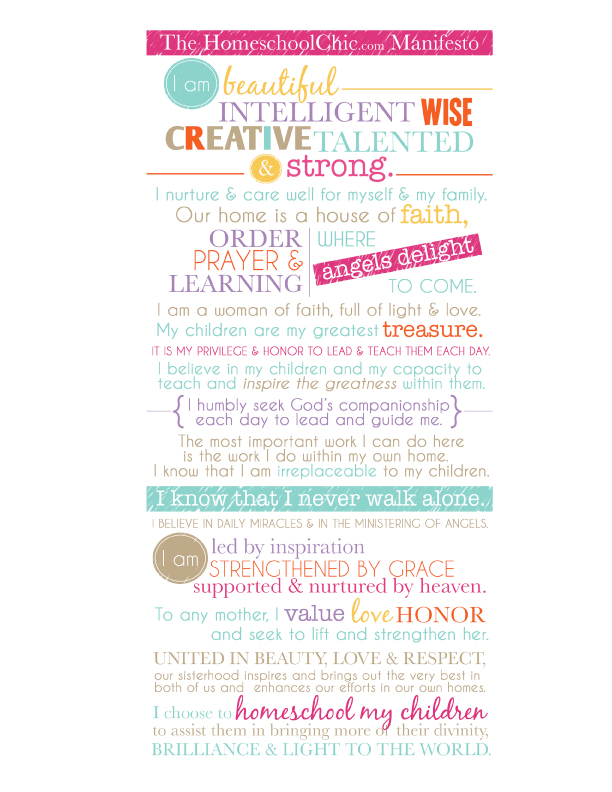 The HomeschoolChic.com Manifesto
I am beautiful
INTELLIGENT WISE
CREATIVE TALENTED
& strong.
I nurture & care well for myself & my family.
Our home is a house of faith,
ORDER
PRAYER &
LEARNING
WHERE
angels delight
TO COME.
I am a woman of faith, full of light & love.
My children are my greatest treasure.
IT IS MY PRIVILEGE & HONOR TO LEAD & TEACH THEM EACH DAY.
I believe in my children and my capacity to
teach and inspire the greatness within them.
{I humbly seek God's companionship
each day to lead and guide me.}
The most important work I can do here
is the work I do within my own home.
I know that I am irreplaceable to my children.
I know that I never walk alone.
I BELIEVE IN DAILY MIRACLES & IN THE MINISTERING OF ANGELS.
I am led by inspiration
STRENGTHENED BY GRACE
supported & nurtured by heaven.
To any mother, I value love HONOR
and seek to lift and strengthen her.
UNITED IN BEAUTY, LOVE & RESPECT,
our sisterhood inspires and brings out the very best in
both of us and enhances our efforts in our own homes.
I choose to homeschool my children
to assist them in bringing more of their divinity,
BRILLIANCE & LIGHT TO THE WORLD.